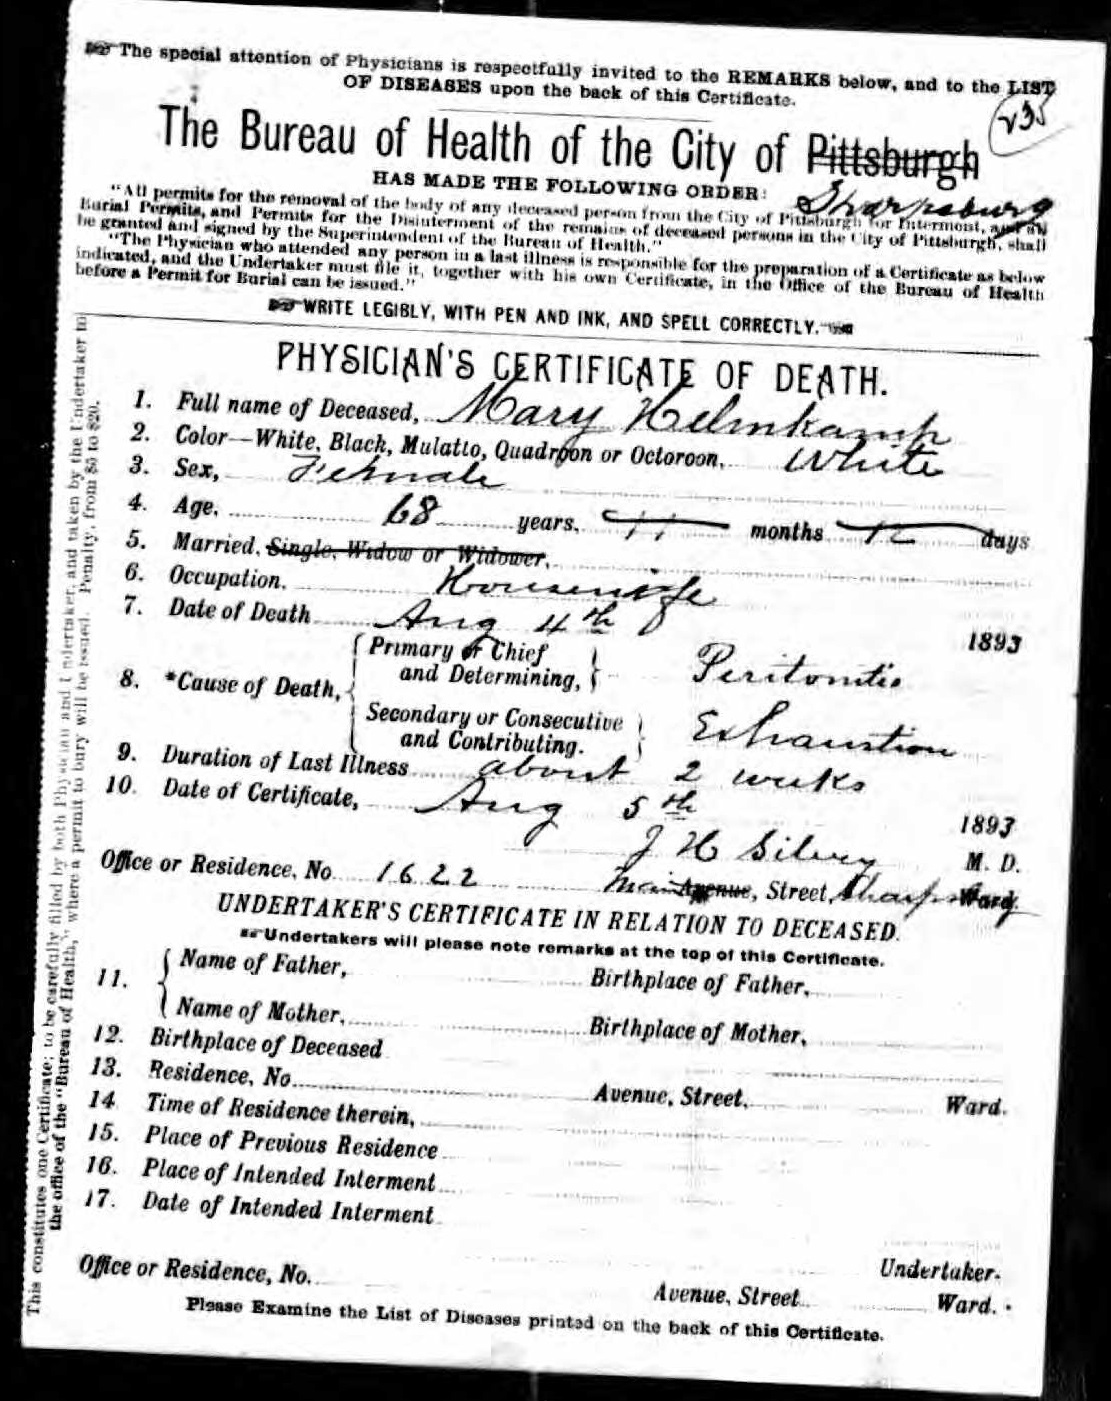 The special attention of Physicians is respectfully invited to the REMARKS below, and to the LIST
OF DISEASES upon the back of this Certificate.
235
The Bureau of Health of the City of Pittsburgh
Sharpsburg
HAS MADE THE FOLLOWING ORDER:
"All permits for the removal of the body of any deceased person from the City of Pittsburgh for Interment, and all
Burial Permits, and Permits for the Disinterment of the remains of deceased persons in the City of Pittsburgh, shall
be granted and signed by the Superintendent of the Bureau of Health."
"The Physician who attended any person in a last illness is responsible for the preparation of a Certificate as below
indicated, and the Undertaker must file it, together with his own Certificate, in the Office of the Bureau of Health
before a Permit for Burial can be issued."
WRITE LEGIBLY, WITH PEN AND INK, AND SPELL CORRECTLY.
PHYSICIAN'S CERTIFICATE OF DEATH.
1. Full name of Deceased, Mary Helmkamp
2. Color—White, Black, Mulatto, Quadroon or Octoroon, White
3. Sex, Female
4. Age, 68 years, 11 months 12 days
5. Married, Single, Widow or Widower,
6. Occupation, Housewife
7. Date of Death Aug 4th 1893
8. *Cause of Death, Primary or Chief and Determining, Peritonitis
Secondary or Consecutive and Contributing. Exhaustion
9. Duration of Last Illness about 2 weeks
10. Date of Certificate, Aug 5th 1893
J H Silvey M. D.
Office or Residence, No 1622 Main Avenue, Street, Sharpsburg Ward.
UNDERTAKER'S CERTIFICATE IN RELATION TO DECEASED.
Undertakers will please note remarks at the top of this Certificate.
11. Name of Father, Birthplace of Father,
Name of Mother, Birthplace of Mother,
12. Birthplace of Deceased
13. Residence, No Avenue, Street, Ward.
14 Time of Residence therein,
15. Place of Previous Residence
16. Place of Intended Interment
17. Date of Intended Interment
Undertaker.
Office or Residence, No. Avenue, Street Ward.
Please Examine the List of Diseases printed on the back of this Certificate.
This constitutes one Certificate; to be carefully filled by both Physician and Undertaker, and taken by the Undertaker to
the office of the "Bureau of Health," where a permit to bury will be issued. Penalty, from $5 to $20.